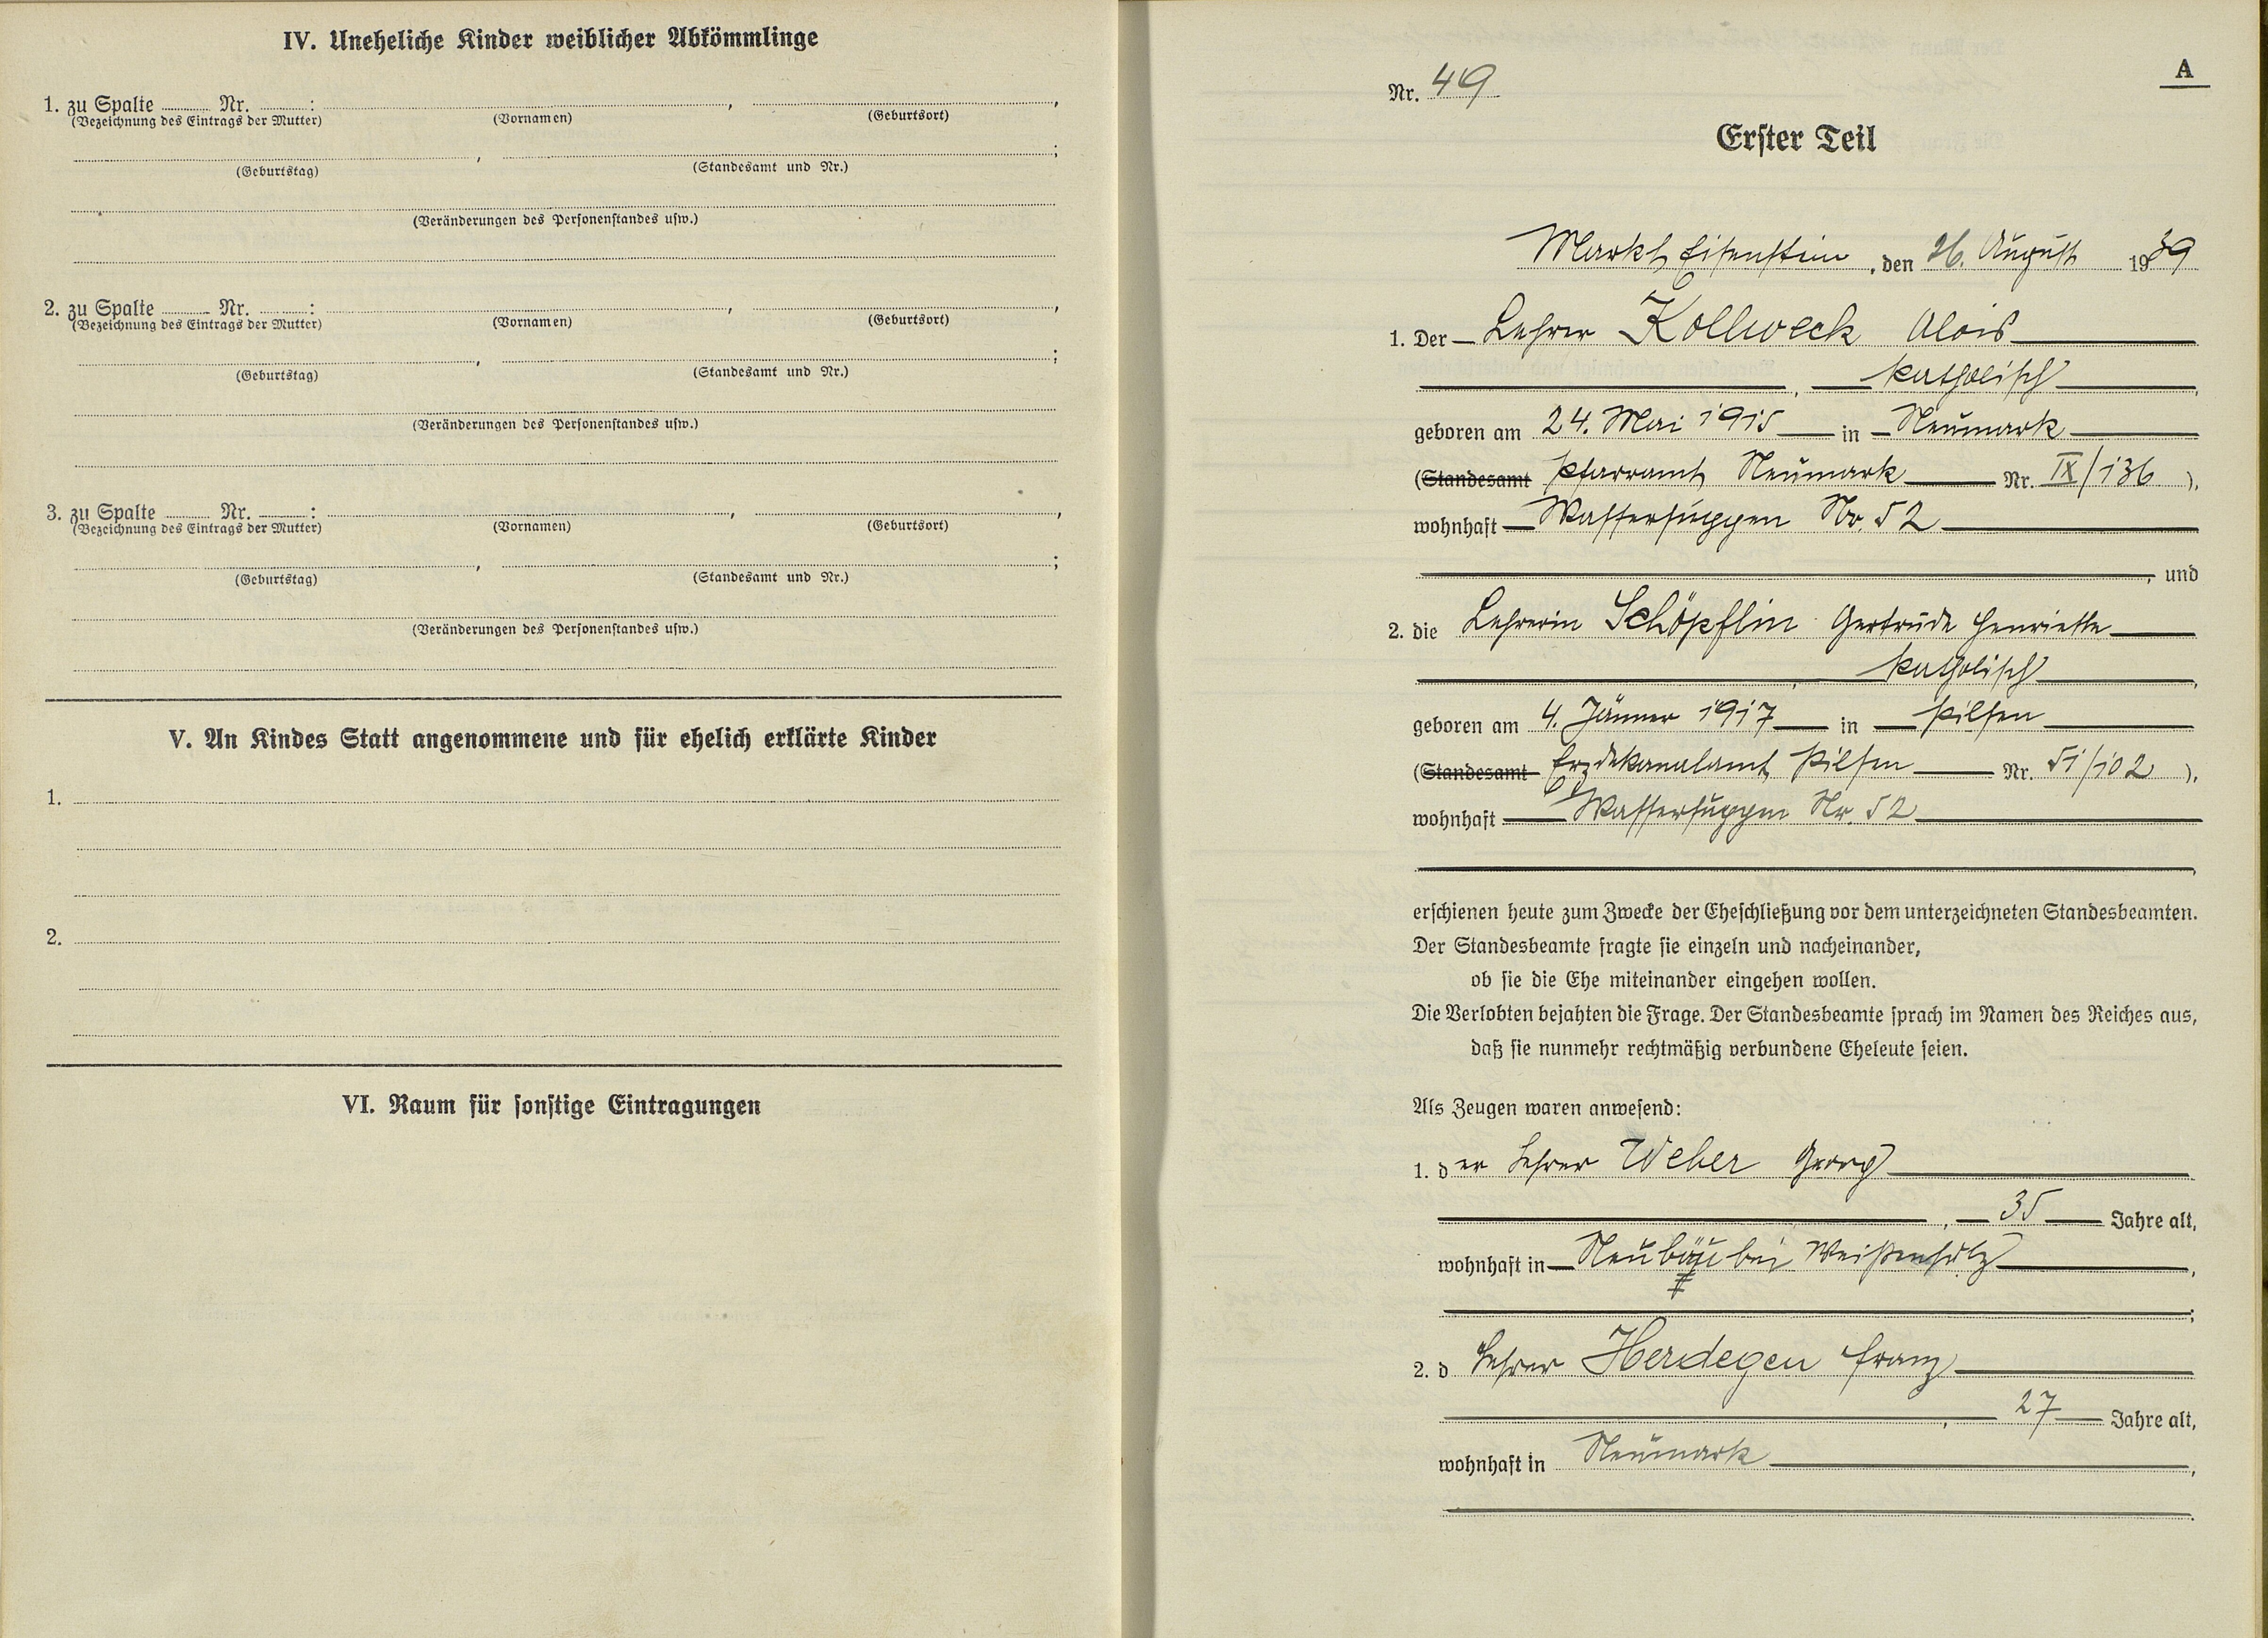 IV. Uneheliche Kinder weiblicher Abkömmlinge
1. zu Spalte ........ Nr. ........ : ........ , ........ ,
(Bezeichnung des Eintrags der Mutter) (Vornamen) (Geburtsort)
, ;
(Geburtstag) (Standesamt und Nr.)
(Veränderungen des Personenstandes usw.)
2. zu Spalte ........ Nr. ........ : ........ , ........ ,
(Bezeichnung des Eintrags der Mutter) (Vornamen) (Geburtsort)
, ;
(Geburtstag) (Standesamt und Nr.)
(Veränderungen des Personenstandes usw.)
3. zu Spalte ........ Nr. ........ : ........ , ........ ,
(Bezeichnung des Eintrags der Mutter) (Vornamen) (Geburtsort)
, ;
(Geburtstag) (Standesamt und Nr.)
(Veränderungen des Personenstandes usw.)
V. An Kindes Statt angenommene und für ehelich erklärte Kinder
1.
2.
VI. Raum für sonstige Eintragungen
A
Nr. 49
Erster Teil
Markt Eisenstein, den 26. August 1939
1. Der Lehrer Kollweck Alois
, katholisch,
geboren am 24. Mai 1915 in Neumark
(Standesamt Pfarramt Neumark Nr. IX/136 ),
wohnhaft Wassersuppen Nr. 52
, und
2. die Lehrerin Schöpflin Gertrude Henriette
, katholisch,
geboren am 4. Jänner 1917 in Pilsen
(Standesamt Erzdekanalamt Pilsen Nr. 51/102 ),
wohnhaft Wassersuppen Nr. 52
,
erschienen heute zum Zwecke der Eheschließung vor dem unterzeichneten Standesbeamten.
Der Standesbeamte fragte sie einzeln und nacheinander,
ob sie die Ehe miteinander eingehen wollen.
Die Verlobten bejahten die Frage. Der Standesbeamte sprach im Namen des Reiches aus,
daß sie nunmehr rechtmäßig verbundene Eheleute seien.
Als Zeugen waren anwesend:
1. der Lehrer Weber Georg
, 35 Jahre alt,
wohnhaft in Neubäu bei Weißensulz,
;
2. d Lehrer Herdegen Franz
, 27 Jahre alt,
wohnhaft in Neumark,
.